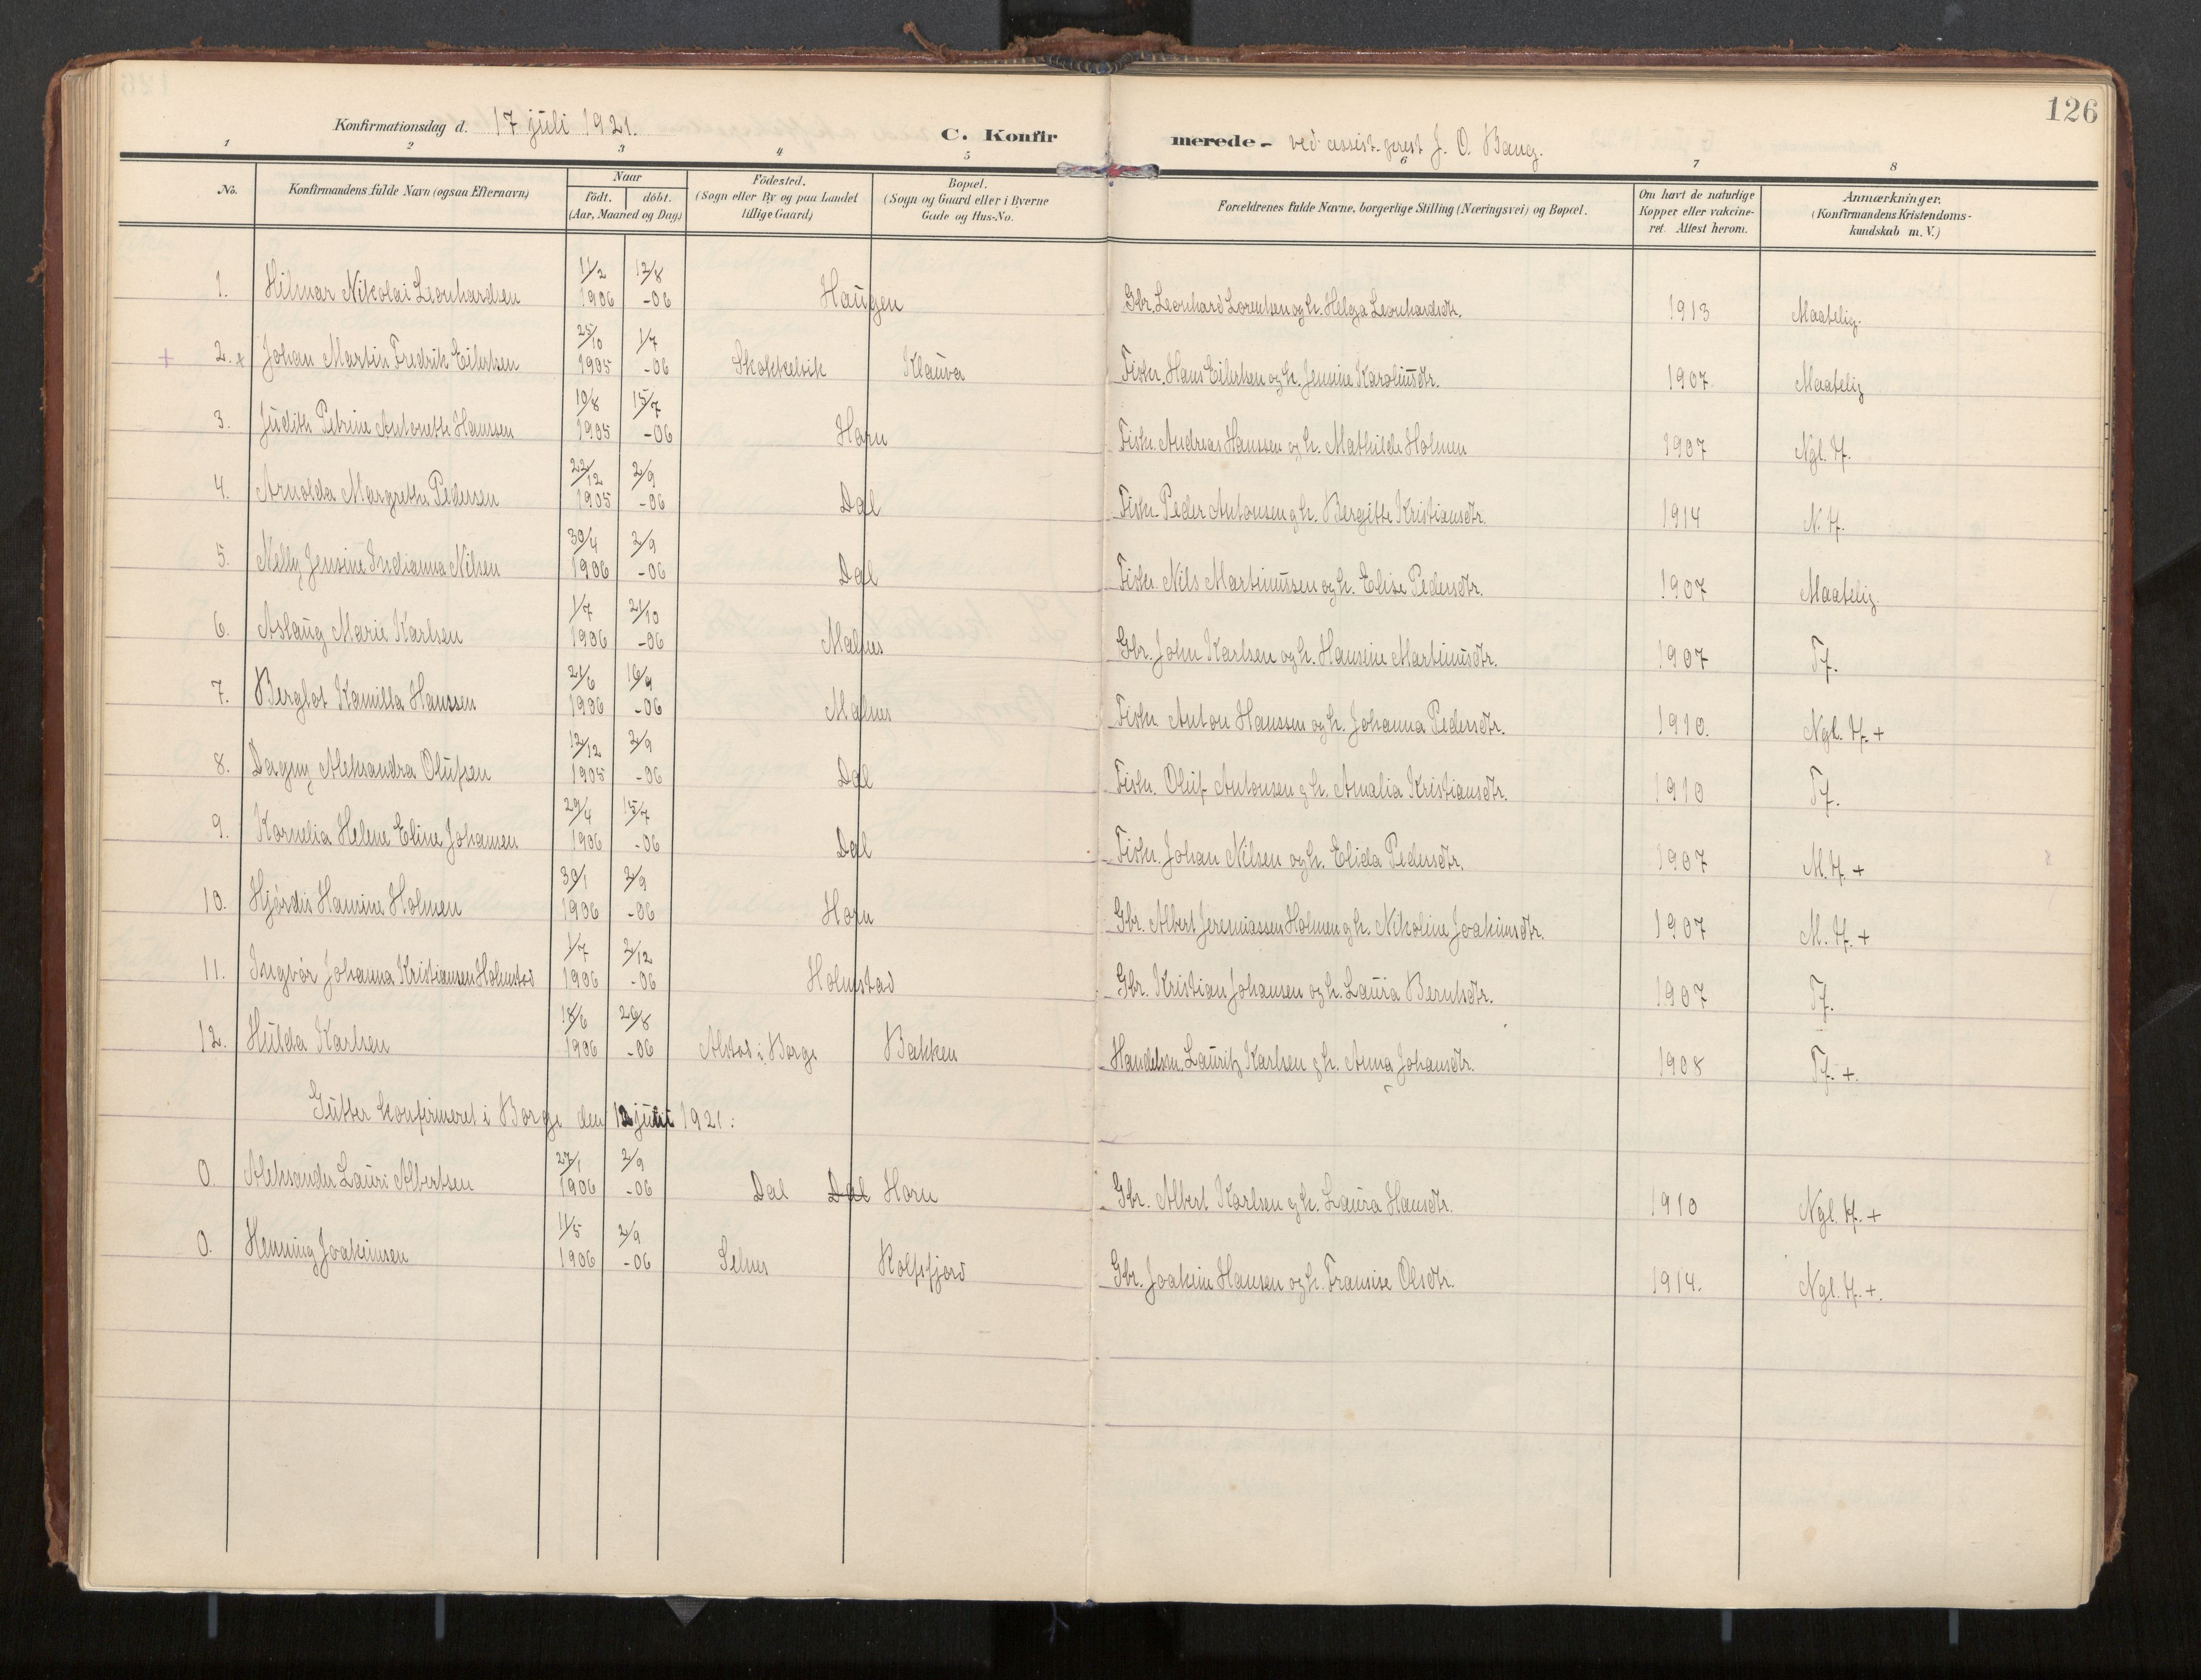 126
Konfirmationsdag d. 17 juli 1921. C. Konfirmerede - ved assist. prest J. O. Bang.
1 2 3 4 5 6 7 8
No. Konfirmandens fulde Navn (ogsaa Efternavn) Naar Födested. Bopæl. Forældrenes fulde Navne, borgerlige Stilling (Næringsvei) og Bopæl. Om havt de naturlige Anmærkninger.
födt. döbt. (Sogn eller By og paa Landet (Sogn og Gaard eller i Byerne Kopper eller vakcine- (Konfirmandens Kristendoms-
(Aar, Maaned og Dag) tillige Gaard) Gade og Hus-No. ret. Attest herom. kundskab m. V.)
1. Hilmar Nikolai Leonhardsen 11/2 1906 12/8 -06 Haugen Gbr. Leonhard Lorentsen og h. Helga Leonhardsdtr. 1913 Maatelig.
+ 2. x Johan Martin Fredrik Eilertsen 25/10 1905 1/7 -06 Skokkelvik Klauva Fiskr. Hans Eilertsen og h. Jensine Karolinsdtr. 1907. Maatelig
3. Judith Petrine Antonette Hanssen 10/8 1905 15/7 -06 Horn Fiskr. Andreas Hanssen og h. Mathilde Holmen 1907 Ngl. Tf.
4. Arnolda Margrethe Pedersen 22/12 1905 2/9 -06 Dal Fiskr. Peder Antonsen og h. Bergitte Kristiansdtr. 1914 N. Tf.
5. Nelly Jensine Indianna Nilsen 30/4 1906 2/9 -06 Dal Fiskr. Nils Martinussen og h. Elise Pedersdtr. 1907 Maatelig.
6. Aslaug Marie Karlsen 1/7 1906 21/10 -06 Malnes Gbr. John Karlsen og h. Hansine Martinusdtr. 1907 Tf.
7. Berglot Kamilla Hanssen 21/6 1906 16/9 -06 Malnes Fiskr. Anton Hanssen og h. Johanna Pedersdtr. 1910. Ngl. Tf. +
8. Dagny Aleksandra Olufsen 12/12 1905 2/9 -06 Dal Fiskr. Oluf Antonsen og h. Amalia Kristiansdtr. 1910 Tf.
9. Kornelia Helene Eline Johansen 29/4 1906 15/7 -06 Dal Fiskr. Johan Nilsen og h. Elida Pedersdtr. 1907 M. Tf. +
10. Hjördis Hansine Holmen 30/1 1906 2/9 -06 Horn Gbr. Albert Jeremiassen Holmen og h. Nikoline Joakimsdtr. 1907 M. Tf. +
11. Ingvor Johanna Kristiansen Holmstad 1/7 1906 2/12 -06 Holmstad Gbr. Kristian Johansen og h. Laura Berntsdtr. 1907 Tf.
12. Hulda Karlsen 18/6 1906 26/8 -06 Alstad i Borge Bakken Handelsm. Lauritz Karlsen og h. Anna Johansdtr. 1908 Tf. +.
Gutter konfirmeret i Borge den 12 juni 1921:
0. Aleksander Lauri Albertsen 27/1 1906 2/9 -06 Dal Dal Horn Gbr. Albert Karlsen og h. Laura Hansdtr. 1910 Ngl. Tf. +
0. Henning Joakimsen 11/5 1906 2/9 -06 Selnes Rolfsfjord Gbr. Joakim Hansen og h. Fransise Olsdtr. 1914. Ngl. Tf. +.